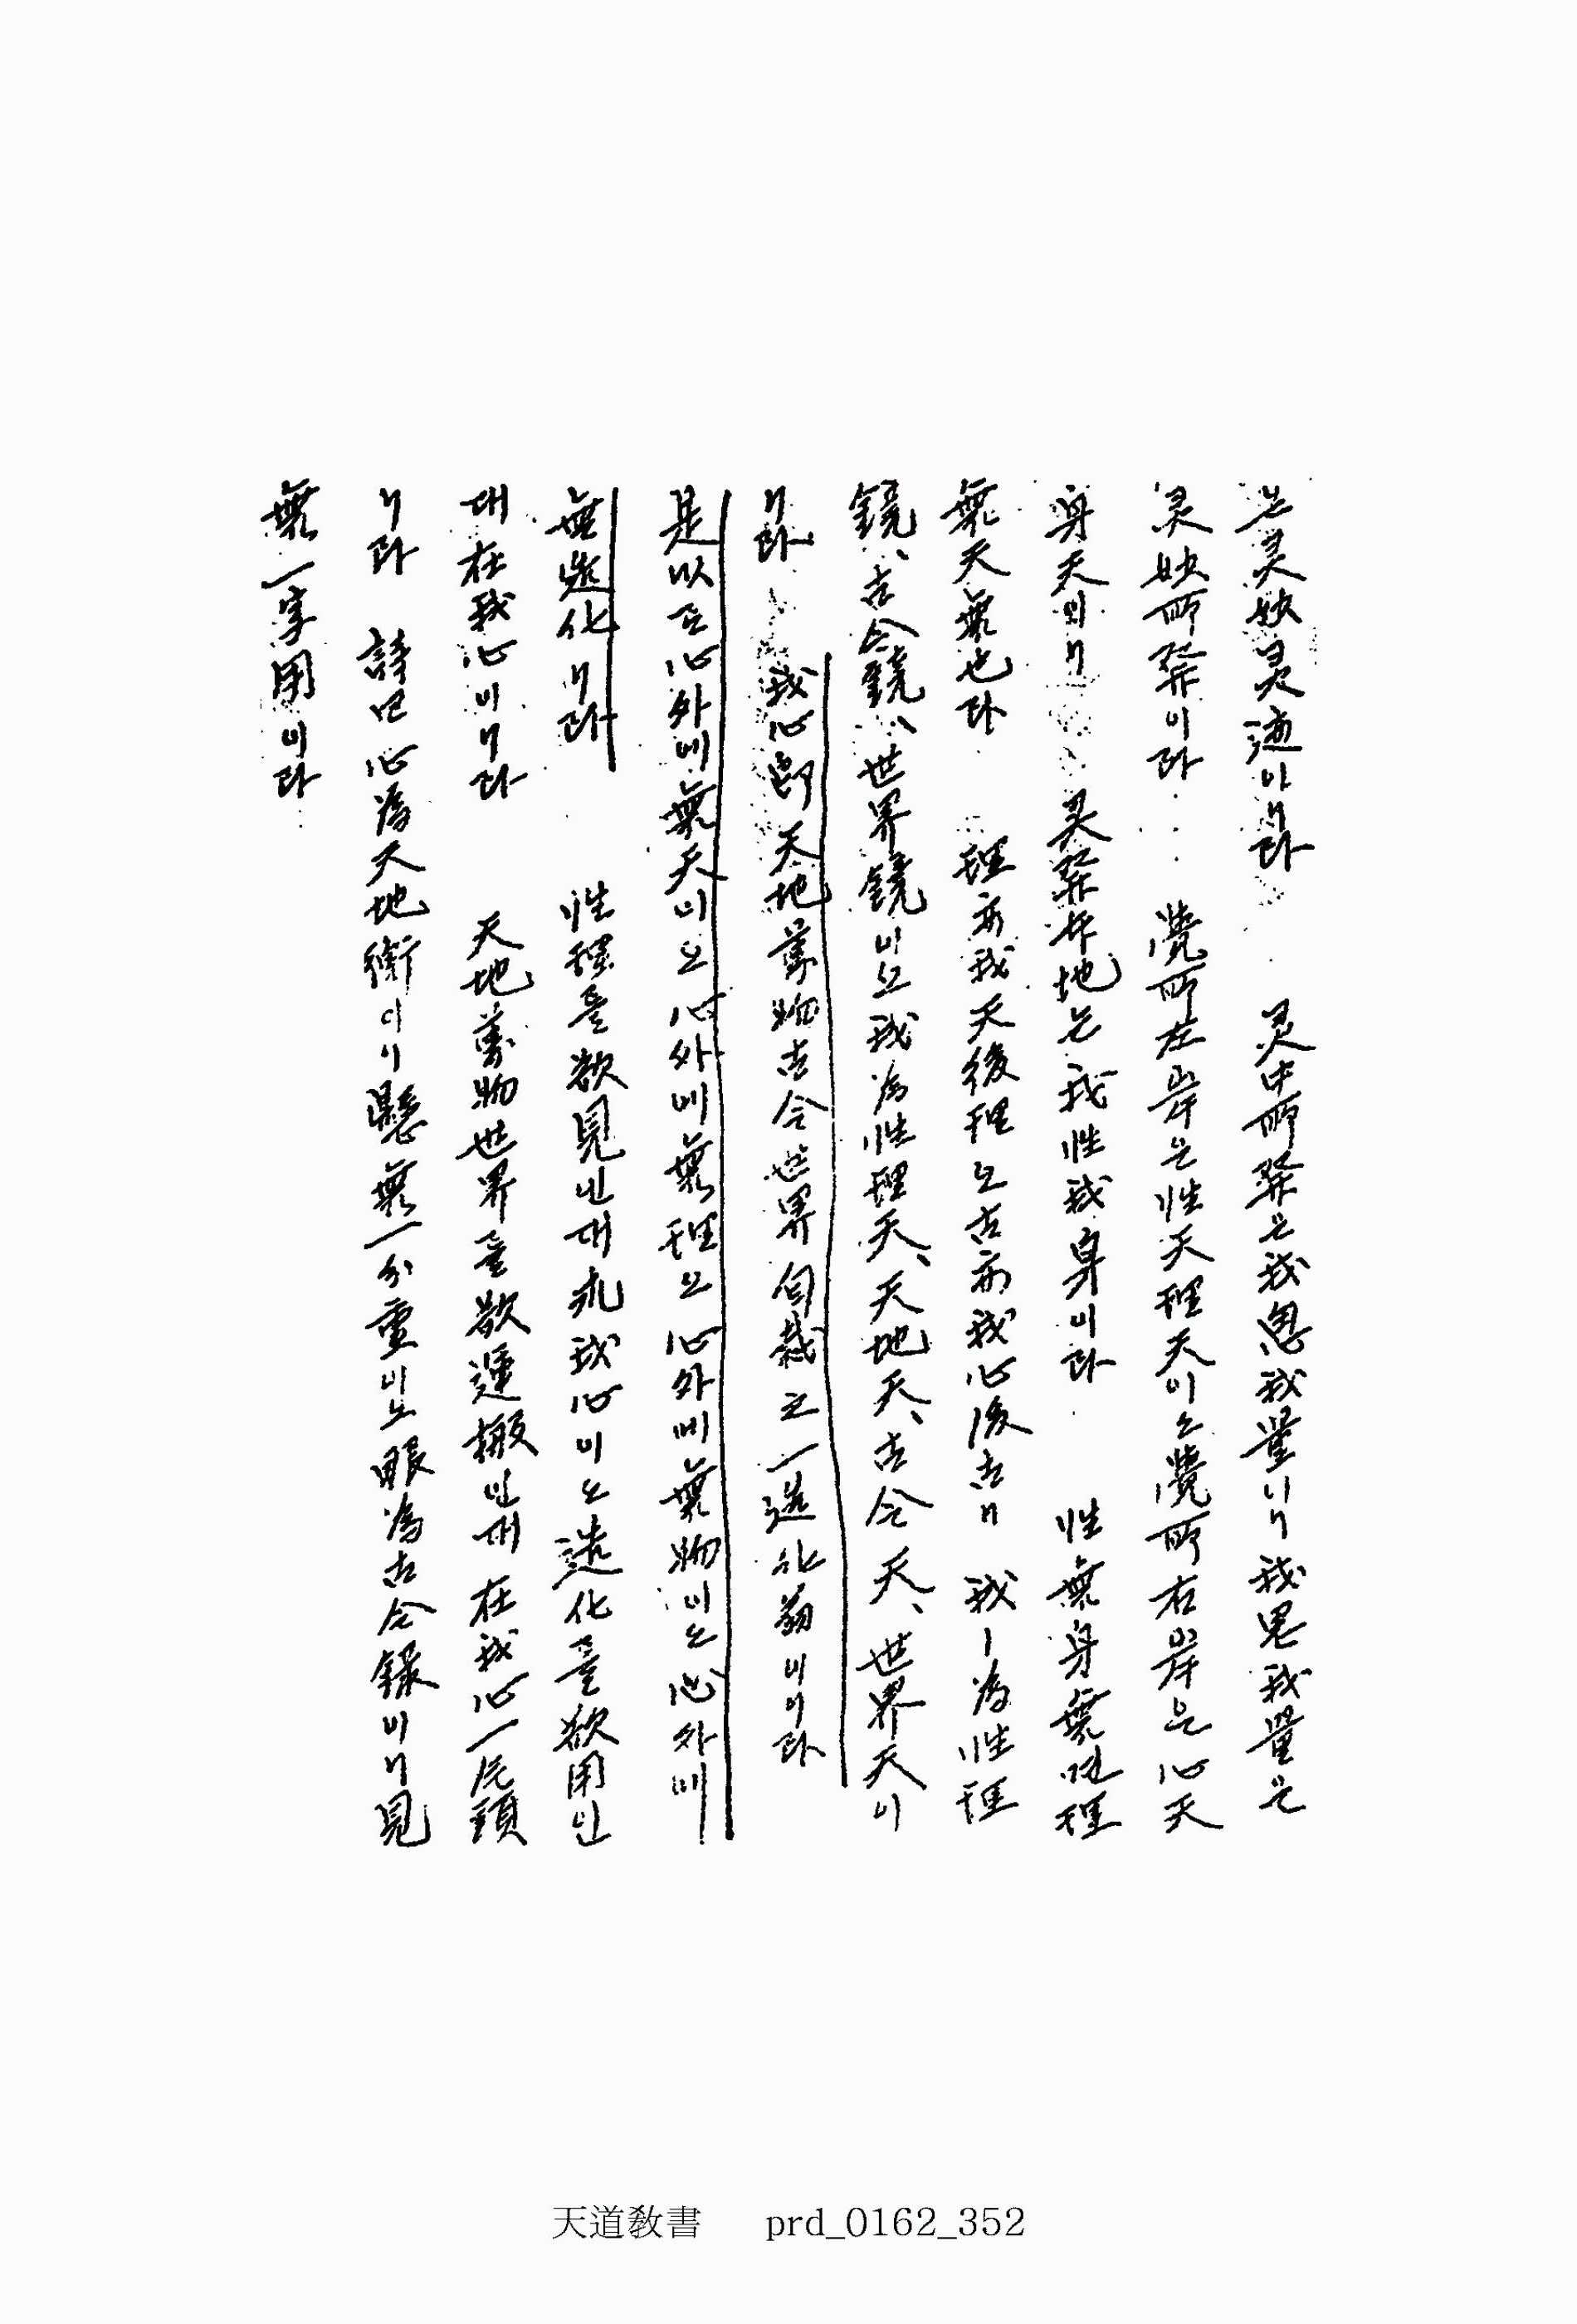 는灵妙灵迹이니라 灵中所發은我思我量이니我思我量은
灵妙所發이라 覺所左岸은性天理天이오覺所右岸은心天
身天이니 灵發本地는我性我身이라 性無身無면理
無天無也라 理亦我天後理오古亦我心後古니 我ㅣ為性理
鏡、古今鏡、世界鏡이오我為性理天、天地天、古今天、世界天이
니라 我心即天地萬物古今世界自裁之一造化翁이니라
是以로心外에無天이오心外에無理오心外에無物이오心外에
無造化니라 性理를欲見인대求我心이오造化를欲用인
대在我心이니라 天地萬物世界를欲運搬인대在我心一片頭
니라 詩曰心為天地衡이니懸無一分重이오眼為古今錄이니見
無一字用이라
天道敎書 prd_0162_352